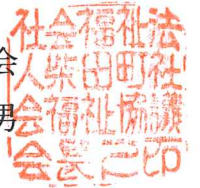 会
男
社会福祉法
人柴田町社
会福祉協議
会長之印